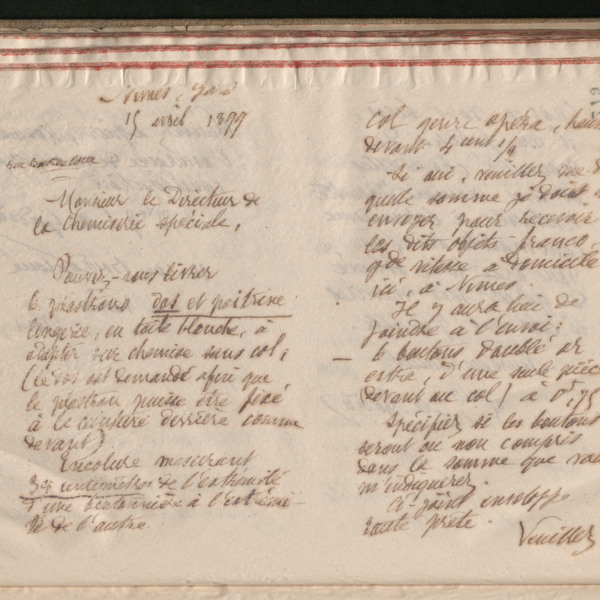 Nimes, Gard
15 avril 1899
Monsieur le Directeur de
la Chemiserie spéciale,
Pouvez-vous livrer
6 plastrons dos et poitrine
lingerie, en toile blanche, à
adapter sur chemise sans col;
(le dos est demandé afin que
le plastron puisse être fixé
à la ceinture derrière comme
devant)
Encolure mesurant
centimètres de l'extrémité
d'une boutonnière à l'extrémi-
té de l'autre.
col genre opéra,
devant 4 cent 1/2
Si oui, veuillez me
quelle somme je dois
envoyer pour recevoir
les dits objets franco,
gde vitesse à domicile
ici, à Nimes.
Il y aura lieu de
joindre à l'envoi:
6 boutons doublé or
extra, d'une seule pièce
devant au col) à 0f,75
Spécifier si les boutons
seront ou non compris
dans la somme que vous
m'indiquerez.
Ci-joint enveloppe
toute prête.
Veuillez